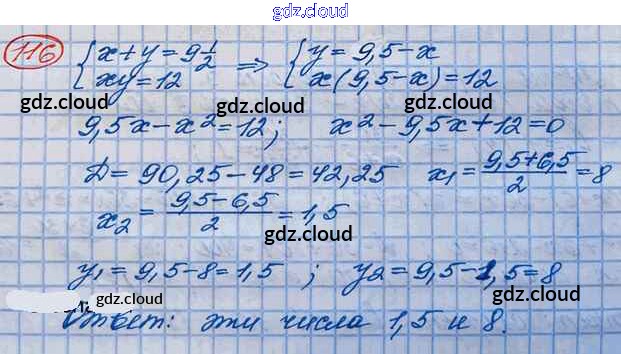 gdz.cloud
gdz.cloud
116 { x+y=9 1/2 ⇒ { y=9,5-x
xy=12 x(9,5-x)=12
gdz.cloud gdz.cloud gdz.cloud
9,5x-x²=12; x²-9,5x+12=0
Д=90,25-48=42,25 x₁=(9,5+6,5)/2=8
gdz.cloud gdz.cloud
x₂=(9,5-6,5)/2=1,5
gdz.cloud
y₁=9,5-8=1,5 ; y₂=9,5-1,5=8
gdz.cloud gdz.cloud
Ответ: эти числа 1,5 и 8.